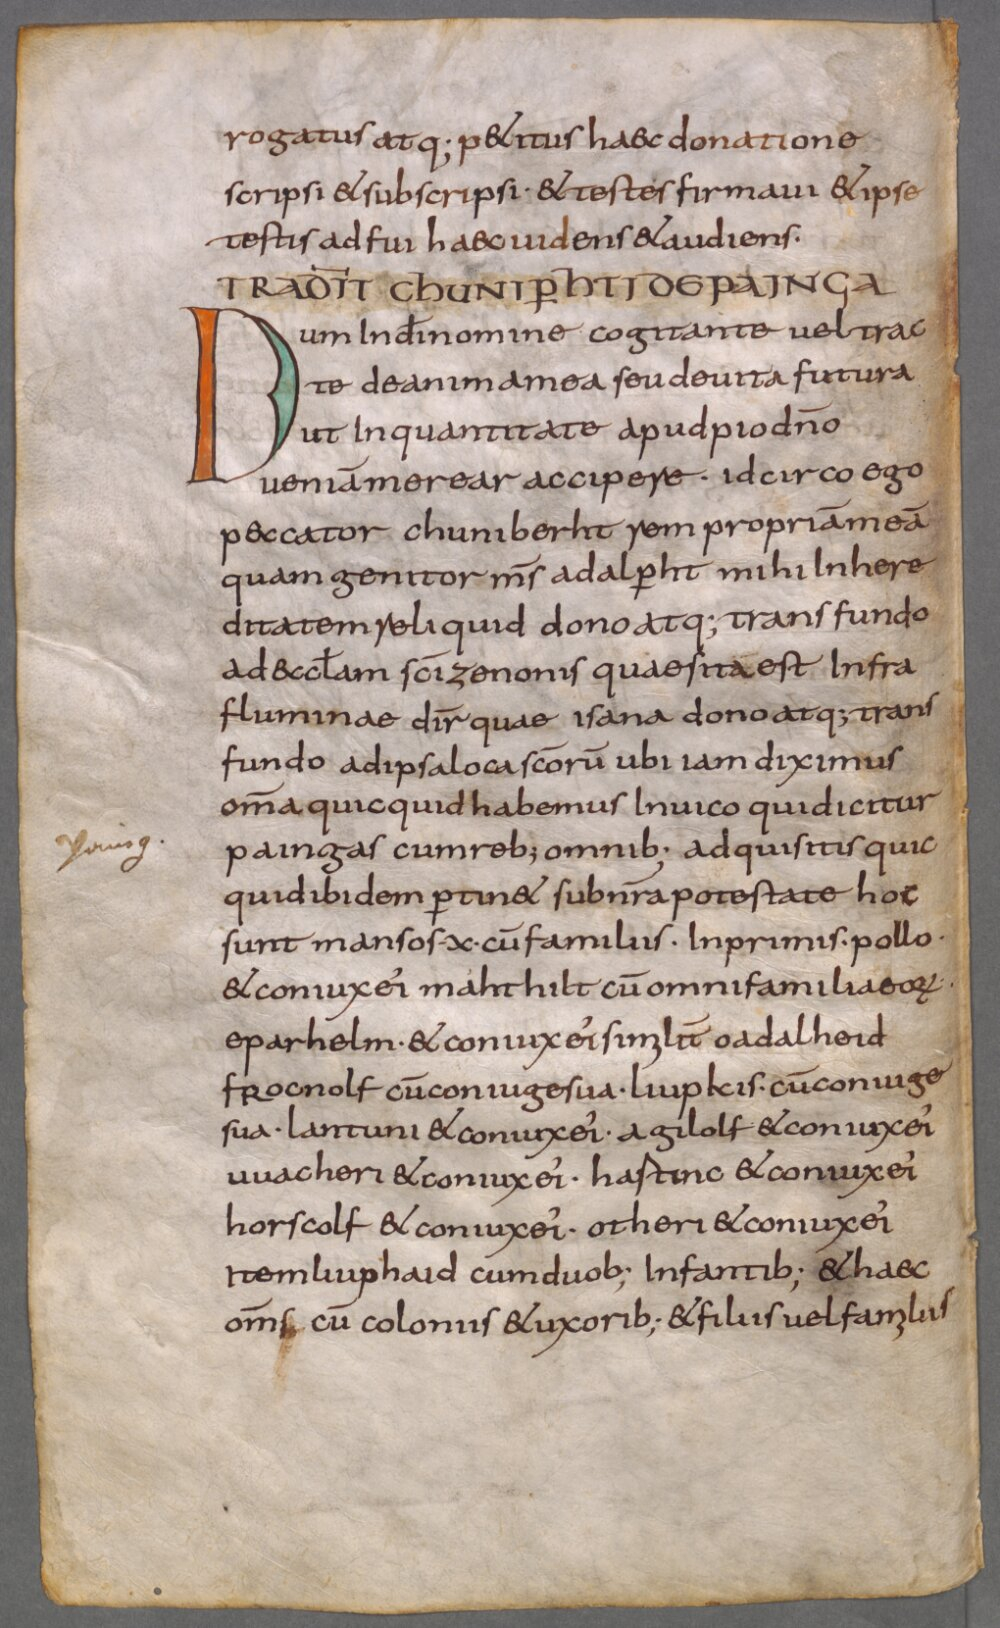 rogatus atq; p&itus haec donatione
scripsi & subscripsi · & testes firmaui & ipse
testis adfui haec uidens & audiens ·
TRADIT̄ CHUNIP̱HTI DE PAINGA
Dum In dī nomine cogitante uel trac
te de anima mea seu de uita futura
ut In quantitate apud pio dn̄o
ueniā merear accipere · idcirco ego
peccator chuniberht rem propriā meā
quam genitor m̄s adalp̱ht mihi In here
ditatem reliquid dono atq; transfundo
ad eccl̄am sc̄i zenonis quae sita est Infra
fluminae dir̄ quae isana dono atq; trans
fundo ad ipsa loca sc̄orū ubi iam diximus
om̄a quicquid habemus In uico qui dicitur
paingas cum reb; omnib; adquisitis quic
quid ibidem p̱tin& sub nr̄a potestate hoc
sunt mansos · x · cū familiis · Inprimis · pollo ·
& coniux ei mahthilt cū omni familia eoꝝ ·
eparhelm · & coniux ei simlit̄ oadalheid
frocnolf cū coniuge sua · liupkis · cū coniuge
sua · lantuni & coniux ei · agilolf & coniux ei
uuacheri & coniux ei · hastinc & coniux ei
horscolf & coniux ei · otheri & coniux ei
Item liuphaid cum duob; Infantib; & haec
om̄s cū colonus & uxorib; & filiis uel famlus
Painsg.